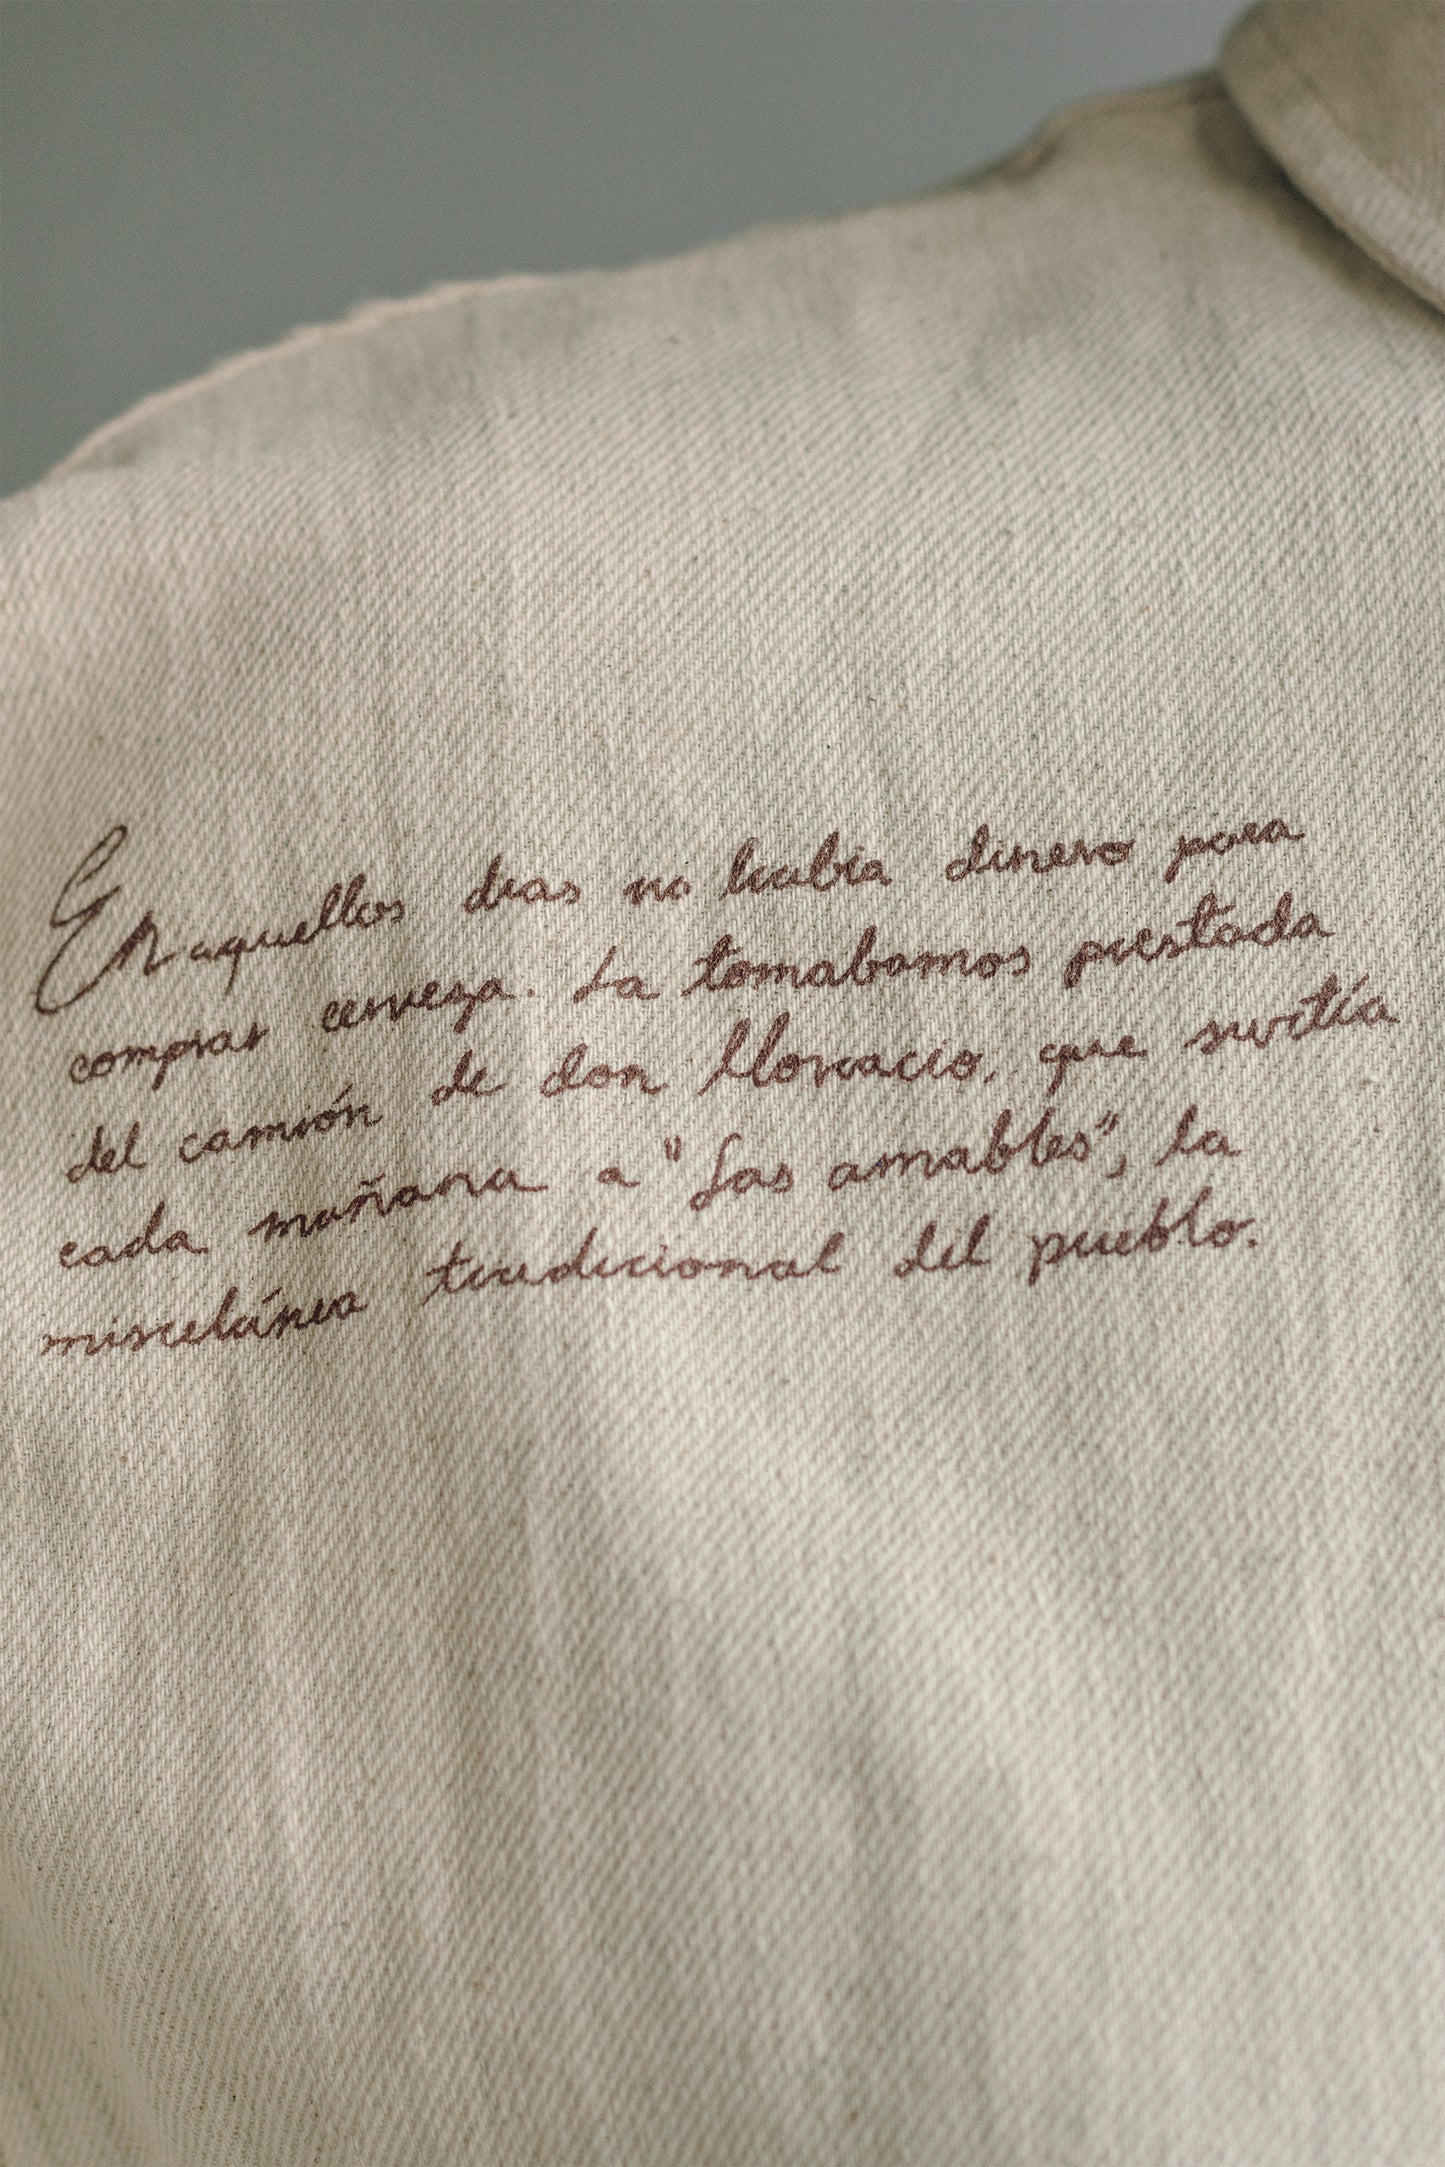 En aquellos dias no habia dinero para
comprar cerveza. La tomabamos prestada
del camión de don Horacio, que surtía
cada mañana a "Las amables", la
miscelánea tradicional del pueblo.